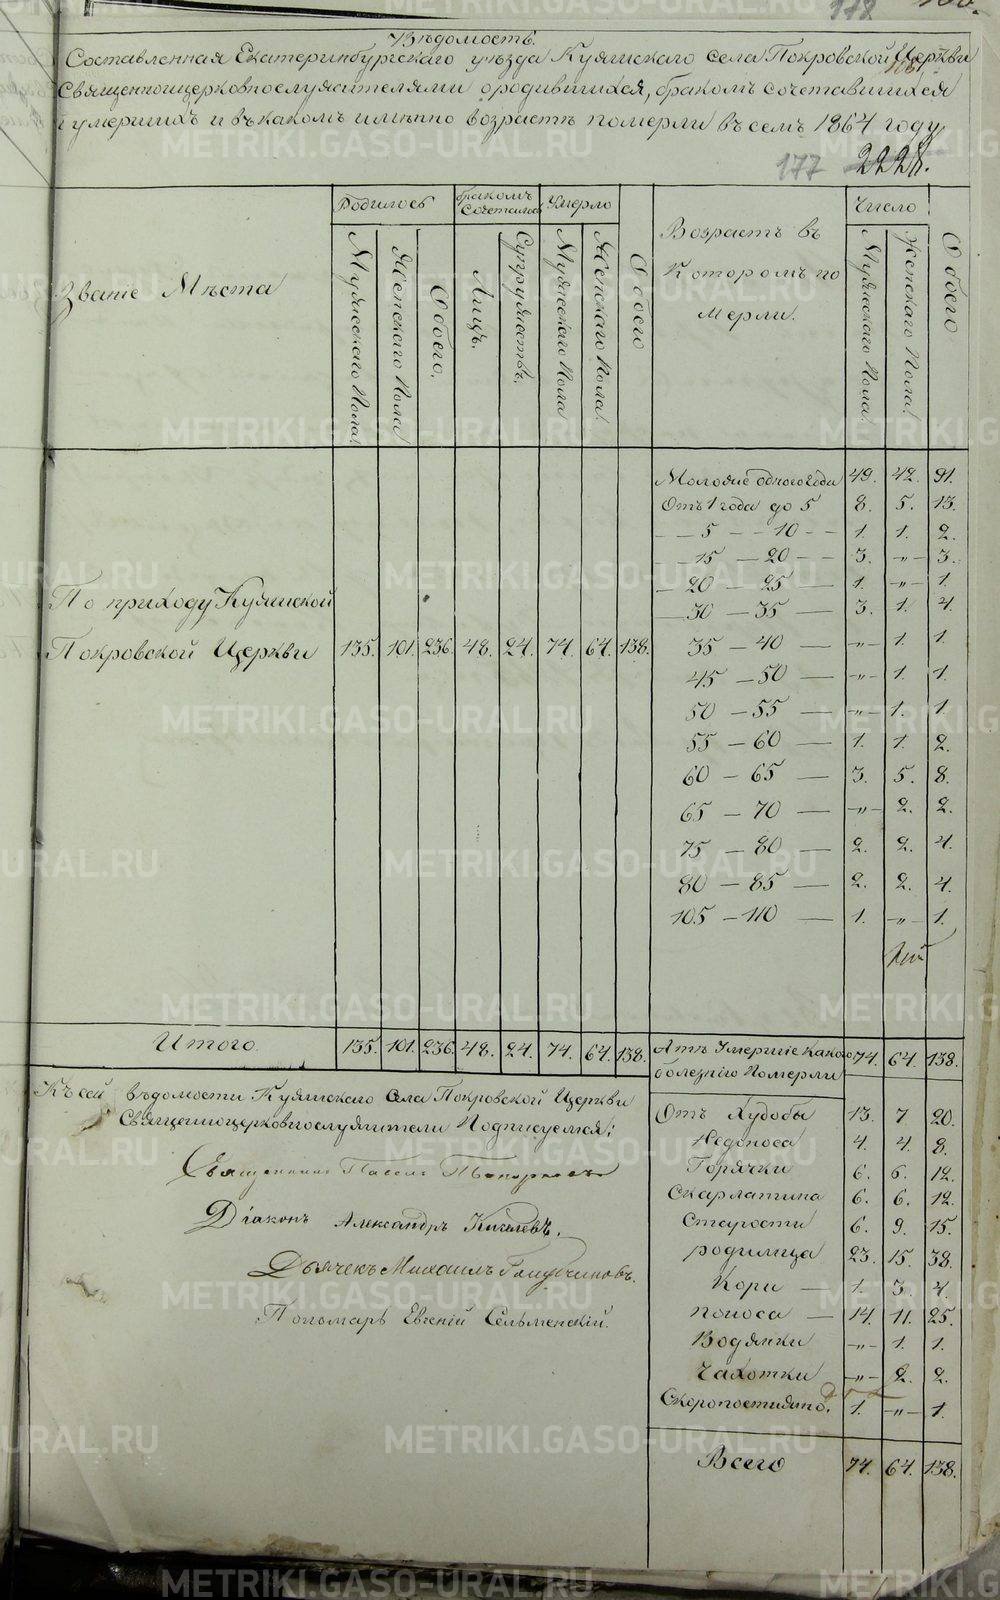 178
Вѣдомость.
Составленная Екатеринбургскаго уѣзда Куяшскаго села Покровской Церкви
Священноцерковнослужителями о родившихся, бракомъ сочетавшихся
и умершихъ и въ какомъ именно возрастѣ померли въ семъ 1864 году
177 2228.
Звание Мѣста
Родилось
бракомъ Сочеталось
Умерло
Обоего
Возрастъ въ Которомъ по мерли.
Число
Обоего
Мужескаго Пола!
Женскаго Пола
Обоего.
Лицъ.
Супружествъ.
Мужескаго Пола
Женскаго Пола!
Мужескаго Пола!
Женскаго Пола!
Моложе одного года 49. 42. 91.
Отъ 1 года до 5 8. 5. 13.
— 5 — 10 — 1. 1. 2.
— 15 — 20 — 3. -„- 3.
— 20 — 25 — 1. -„- 1.
— 30 — 35 — 3. 1. 4.
35 — 40 — -„- 1. 1.
45 — 50 — -„- 1. 1.
50 — 55 — -„- 1. 1.
55 — 60 — 1. 1. 2.
60 — 65 — 3. 5. 8.
65 — 70 — -„- 2. 2.
75 — 80 — 2. 2. 4.
80 — 85 — 2. 2. 4.
105 — 110 — 1. -„- 1.
По приходу Куяшской
Покровской Церкви 135. 101. 236. 48. 24. 74. 64. 138.
Итого. 135. 101. 236. 48. 24. 74. 64. 138.
Атъ Умершіе Какою 74. 64. 138.
болезніго Померли
Къ сей вѣдомости Куяшскаго Села Покровской Церкви
Священноцерковнослужители Подписуемся:
Священникъ Павелъ
Діаконъ Александръ
Дьячекъ Михаилъ
Пономарь Евгеній Сельменскій.
Отъ Худобы 13. 7. 20.
Недоноса 4. 4. 8.
Горячки 6. 6. 12.
Скарлатина 6. 6. 12.
Старости 6. 9. 15.
родимца 23. 15. 38.
Кори — 1. 3. 4.
Поноса — 14. 11. 25.
Водянки -„- 1. 1.
Чахотки -„- 2. 2.
Скоропостижно. 1. -„- 1.
Всего 74. 64. 138.
METRIKI.GASO-URAL.RU